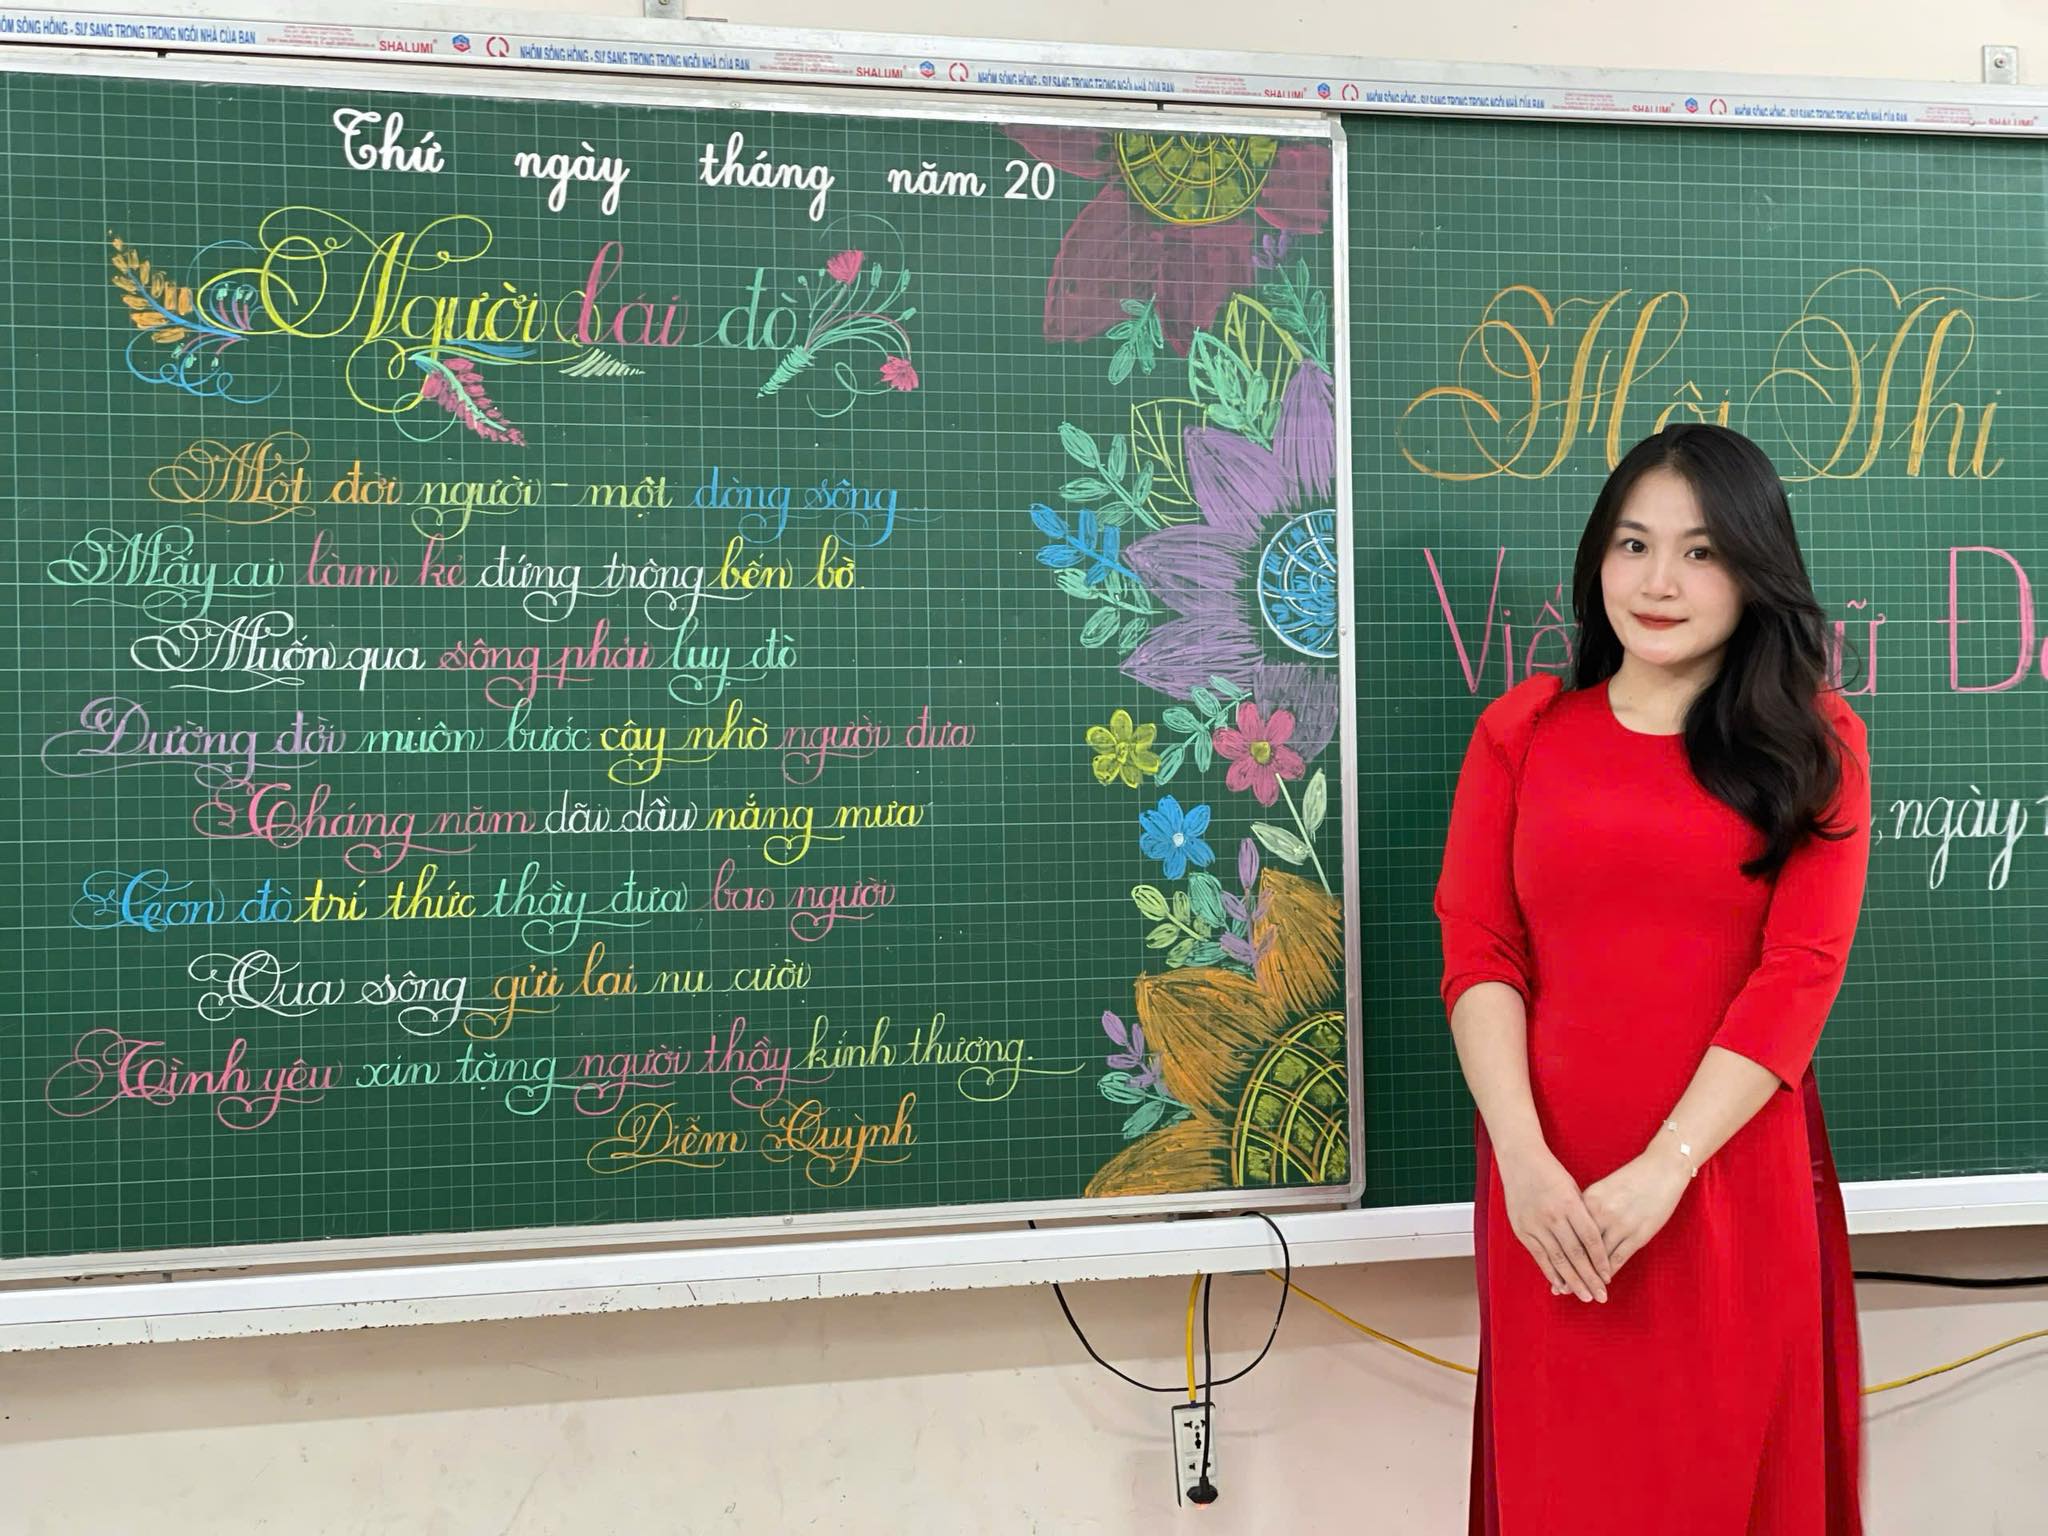 NHÔM SÔNG HỒNG - SỰ SANG TRỌNG TRONG NGÔI NHÀ CỦA BẠN SHALUMI NHÔM SÔNG HỒNG - SỰ SANG TRỌNG TRONG NGÔI NHÀ CỦA BẠN SHALUMI NHÔM SÔNG HỒNG - SỰ SANG TRỌNG TRONG NGÔI NHÀ CỦA BẠN SHALUMI NHÔM SÔNG HỒNG - SỰ SANG TRỌNG TRONG NGÔI NHÀ CỦA BẠN SHALUMI NHÔM SÔNG HỒNG - SỰ SANG TRỌNG TRONG NGÔI NHÀ CỦA BẠN SHALUMI
Thứ ngày tháng năm 20
Người lái đò
Một đời người - một dòng sông...
Mấy ai làm kẻ đứng trông bến bờ.
Muốn qua sông phải luỵ đò
Đường đời muôn bước cậy nhờ người đưa
Tháng năm dãi dầu nắng mưa
Con đò trí thức thầy đưa bao người
Qua sông gửi lại nụ cười
Tình yêu xin tặng người thầy kính thương.
Diễm Quỳnh
Hội Thi
, ngày